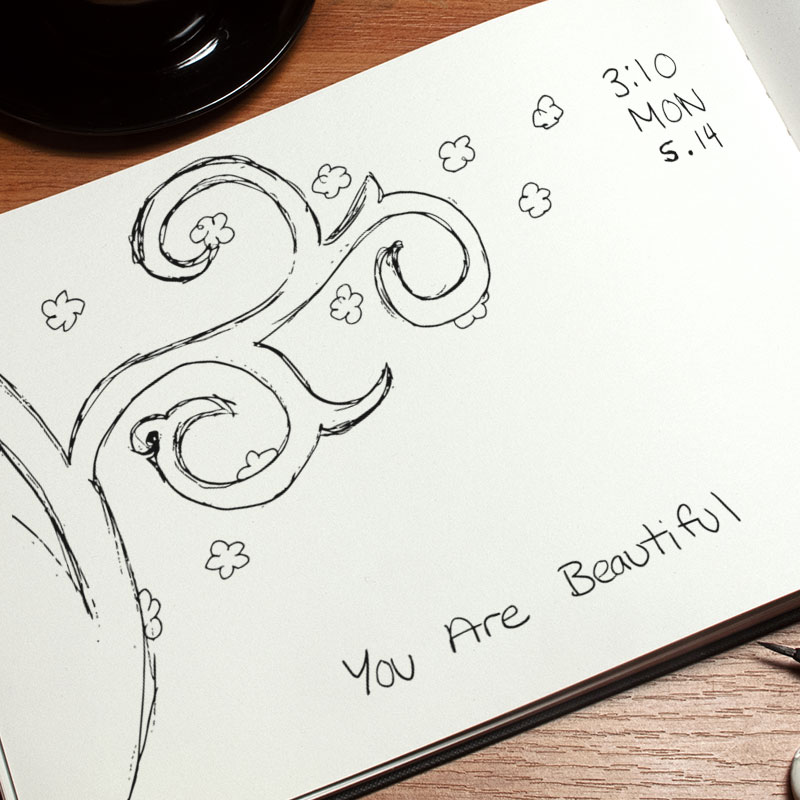 3:10
MON
5.14
You Are Beautiful